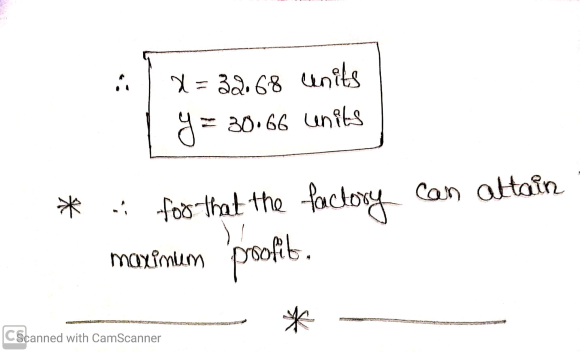 ∴ x = 32.68 units
y = 30.66 units
* ∴ for that the factory can attain
maximum profit.
*
CS Scanned with CamScanner